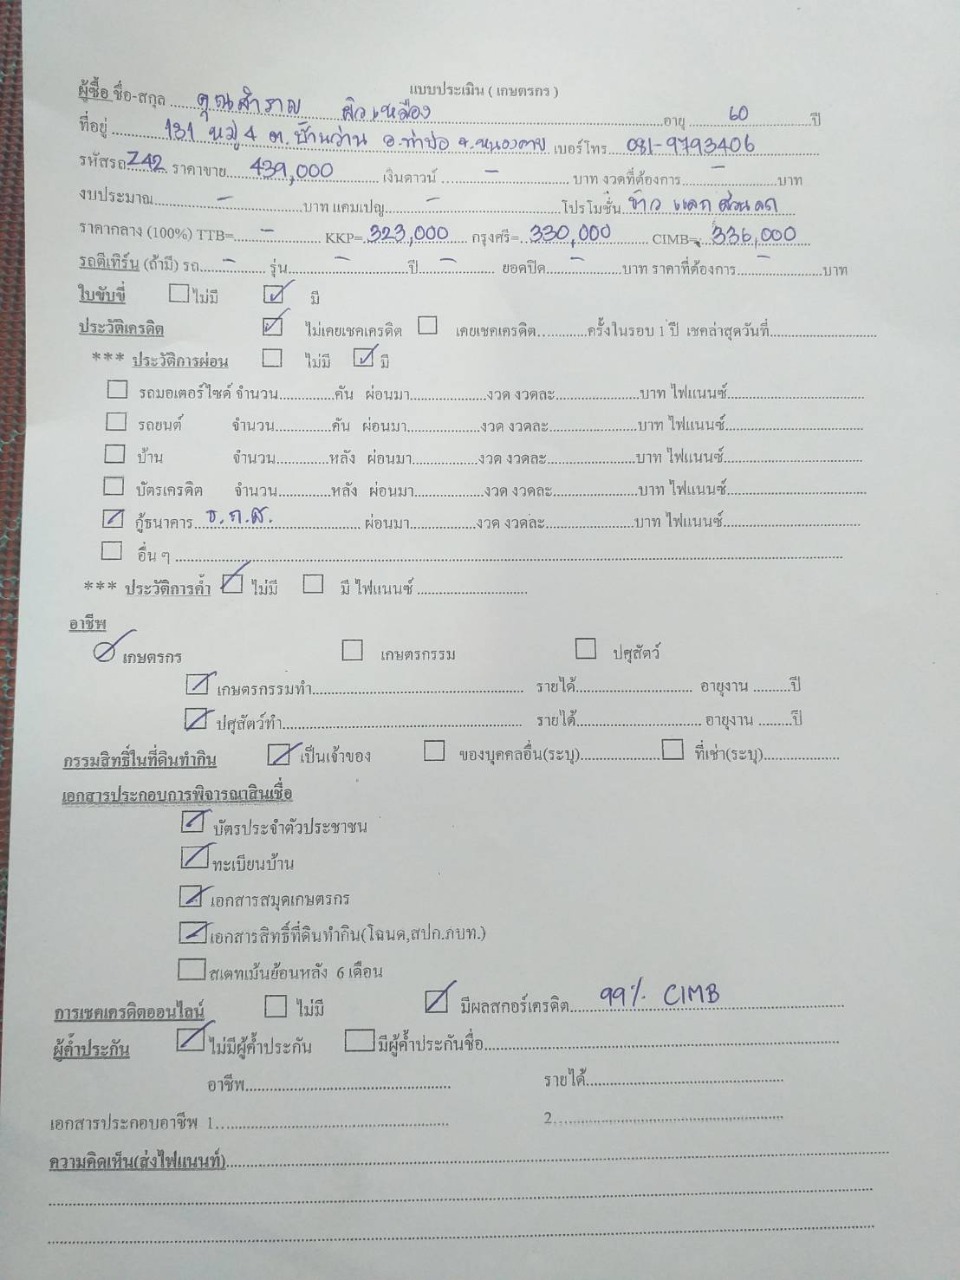 แบบประเมิน ( เกษตรกร )
ผู้ซื้อ ชื่อ-สกุล คุณสำราญ ผิวเหมือง อายุ 60 ปี
ที่อยู่ 131 หมู่ 4 ต.บ้านว่าน อ.ท่าบ่อ จ.หนองคาย เบอร์โทร 081-9793406
รหัสรถ Z42 ราคาขาย 439,000 เงินดาวน์ - บาท งวดที่ต้องการ - บาท
งบประมาณ - บาท แคมเปญ - โปรโมชั่น ข้าว แลก ส่วนลด
ราคากลาง (100%) TTB= - KKP= 323,000 กรุงศรี= 330,000 CIMB= 336,000
รถตีเทิร์น (ถ้ามี) รถ - รุ่น - ปี - ยอดปิด - บาท ราคาที่ต้องการ - บาท
ใบขับขี่ ไม่มี มี
ประวัติเครดิต ไม่เคยเชคเครดิต เคยเชคเครดิต ครั้งในรอบ 1 ปี เชคล่าสุดวันที่
*** ประวัติการผ่อน ไม่มี มี
รถมอเตอร์ไซด์ จำนวน คัน ผ่อนมา งวด งวดละ บาท ไฟแนนซ์
รถยนต์ จำนวน คัน ผ่อนมา งวด งวดละ บาท ไฟแนนซ์
บ้าน จำนวน หลัง ผ่อนมา งวด งวดละ บาท ไฟแนนซ์
บัตรเครดิต จำนวน หลัง ผ่อนมา งวด งวดละ บาท ไฟแนนซ์
กู้ธนาคาร ธ.ก.ส. ผ่อนมา งวด งวดละ บาท ไฟแนนซ์
อื่น ๆ
*** ประวัติการค้ำ ไม่มี มี ไฟแนนซ์
อาชีพ
เกษตรกร เกษตรกรรม ปศุสัตว์
เกษตรกรรมทำ รายได้ อายุงาน ปี
ปศุสัตว์ทำ รายได้ อายุงาน ปี
กรรมสิทธิ์ในที่ดินทำกิน เป็นเจ้าของ ของบุคคลอื่น(ระบุ) ที่เช่า(ระบุ)
เอกสารประกอบการพิจารณาสินเชื่อ
บัตรประจำตัวประชาชน
ทะเบียนบ้าน
เอกสารสมุดเกษตรกร
เอกสารสิทธิ์ที่ดินทำกิน(โฉนด,สปก.ภบท.)
สเตทเม้นย้อนหลัง 6 เดือน
การเชคเครดิตออนไลน์ ไม่มี มีผลสกอร์เครดิต 99% CIMB
ผู้ค้ำประกัน ไม่มีผู้ค้ำประกัน มีผู้ค้ำประกันชื่อ
อาชีพ รายได้
เอกสารประกอบอาชีพ 1 2
ความคิดเห็น(ส่งไฟแนนท์)